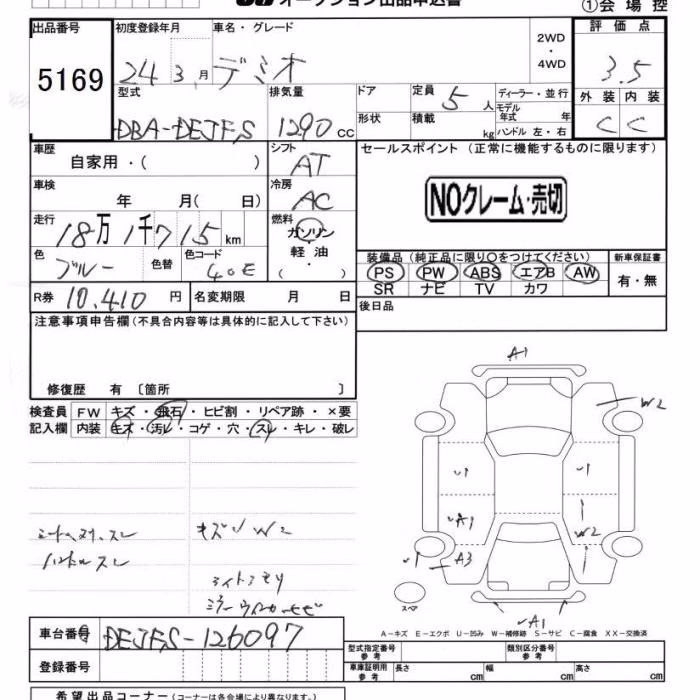 オークション出品申込書
①会場控
出品番号 初度登録年月 車名・グレード 評価点
5169
24 3月 デミオ
2WD
・
4WD
3.5
型式 排気量 ドア 定員 5人 ディーラー・並行
外装 内装
C C
DBA-DEJFS 1290cc
形状 積載 kg
モデル年式 年
ハンドル 左・右
車歴 シフト セールスポイント (正常に機能するものに限ります)
自家用・( ) AT
NOクレーム・売切
車検 冷房
年 月( 日) AC
走行 燃料
18万1千715km ガソリン・軽油・( )
色 ブルー 色替 色コード 40E
装備品 (純正品に限り○をつけてください) 新車保証書
PS PW ABS エアB AW 有・無
SR ナビ TV カワ
R券 10,410円 名変期限 月 日
後日品
注意事項申告欄(不具合内容等は具体的に記入して下さい)
修復歴 有 〔箇所 〕
検査員 FW キズ・飛石・ヒビ割・リペア跡・×要
記入欄 内装 キズ・汚レ・コゲ・穴・スレ・キレ・破レ
A1
W2
A1
W2
A3
A1
キズ W2
ハンドルスレ
スペア
A-キズ E-エクボ U-凹み W-補修跡 S-サビ C-腐食 XX-交換済
車台番号 DEJFS-126097
登録番号
型式指定番号 参考 類別区分番号 参考
車庫証明用 参考 長さ cm 幅 cm 高さ cm
希望出品コーナー(コーナーは各会場により異なります。)